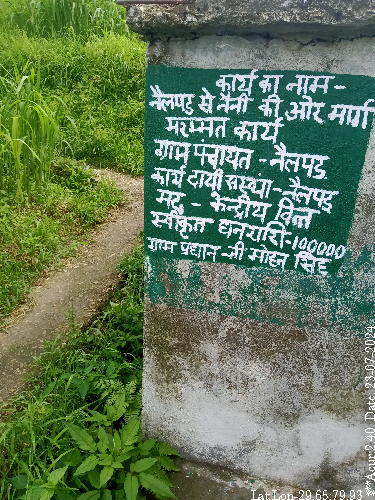 कार्य का नाम -
नैलपड़ से नैनी की ओर मार्ग
मरम्मत कार्य
ग्राम पंचायत - नैलपड़
कार्यदायी संस्था - नैलपड़
मद - केन्द्रीय वित्त
स्वीकृत धनराशि - 100000
ग्राम प्रधान - श्री मोहन सिंह
Lat Lon-29.65:79.93
**Acu:2.40 Date: 23-07-2024